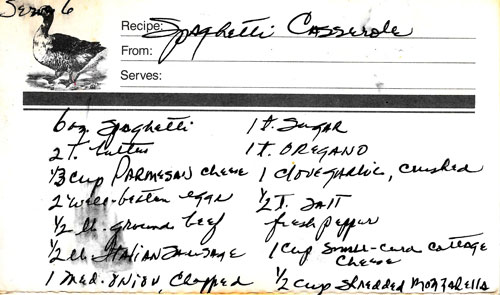 Serves 6
Recipe: Spaghetti Casserole
From:
Serves:
6 oz. Spaghetti
2 T. butter
1/3 cup Parmesan cheese
2 well-beaten eggs
1/2 lb. ground beef
1/2 lb. Italian Sausage
1 med. onion, chopped
1 t. Sugar
1 t. OREGANO
1 clove garlic, crushed
1/2 t. salt
fresh pepper
1 cup small-curd cottage
cheese
1/2 cup shredded mozzarella